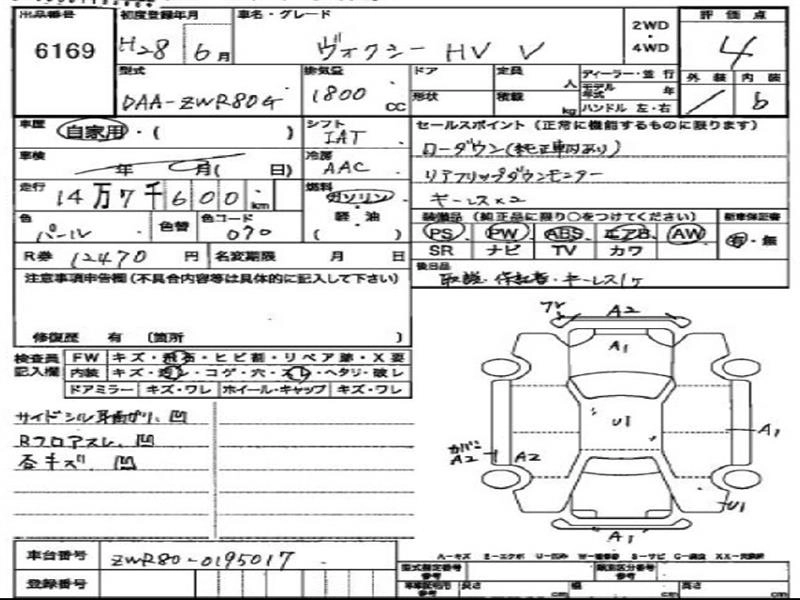 出品番号 初度登録年月 車名・グレード 2WD 評価点
6169 H28 6月 ヴォクシー HV V 4WD 4
型式 排気量 ドア 定員 人 ディーラー・並行 外装 内装
DAA-ZWR80G 1800 CC 形状 積載 kg モデル年式 年 ハンドル 左・右 b
車歴 自家用・( ) シフト IAT セールスポイント (正常に機能するものに限ります)
車検 年 月( 日) 冷房 AAC ローダウン(純正車内あり)
走行 14万7千600km 燃料 ガソリン リアフリップダウンモニター
軽・油 キーレス×2
色 パール 色替 色コード 070 ( ) 装備品 (純正品に限り○をつけてください) 新車保証書
PS PW ABS エアB AW 有・無
SR ナビ TV カワ
R券 12470円 名変期限 月 日 後日品
取説・保証書・キーレス1ヶ
注意事項申告欄 (不具合内容等は具体的に記入して下さい)
修復歴 有 (箇所 )
検査員記入欄 FW キズ・飛石・ヒビ割・リペア跡・X要
内装 キズ・コゲ・穴・スレ・ヘタリ・破レ
ドアミラー キズ・ワレ ホイール・キャップ キズ・ワレ
A2
A1
サイドシル 凹
Rフロアスレ、凹
各キズ、凹
U1
A1
A2 A2
U1
A1
車台番号 ZWR80-0195017
登録番号
型式指定番号 類別区分番号
長さ cm 幅 cm 高さ cm